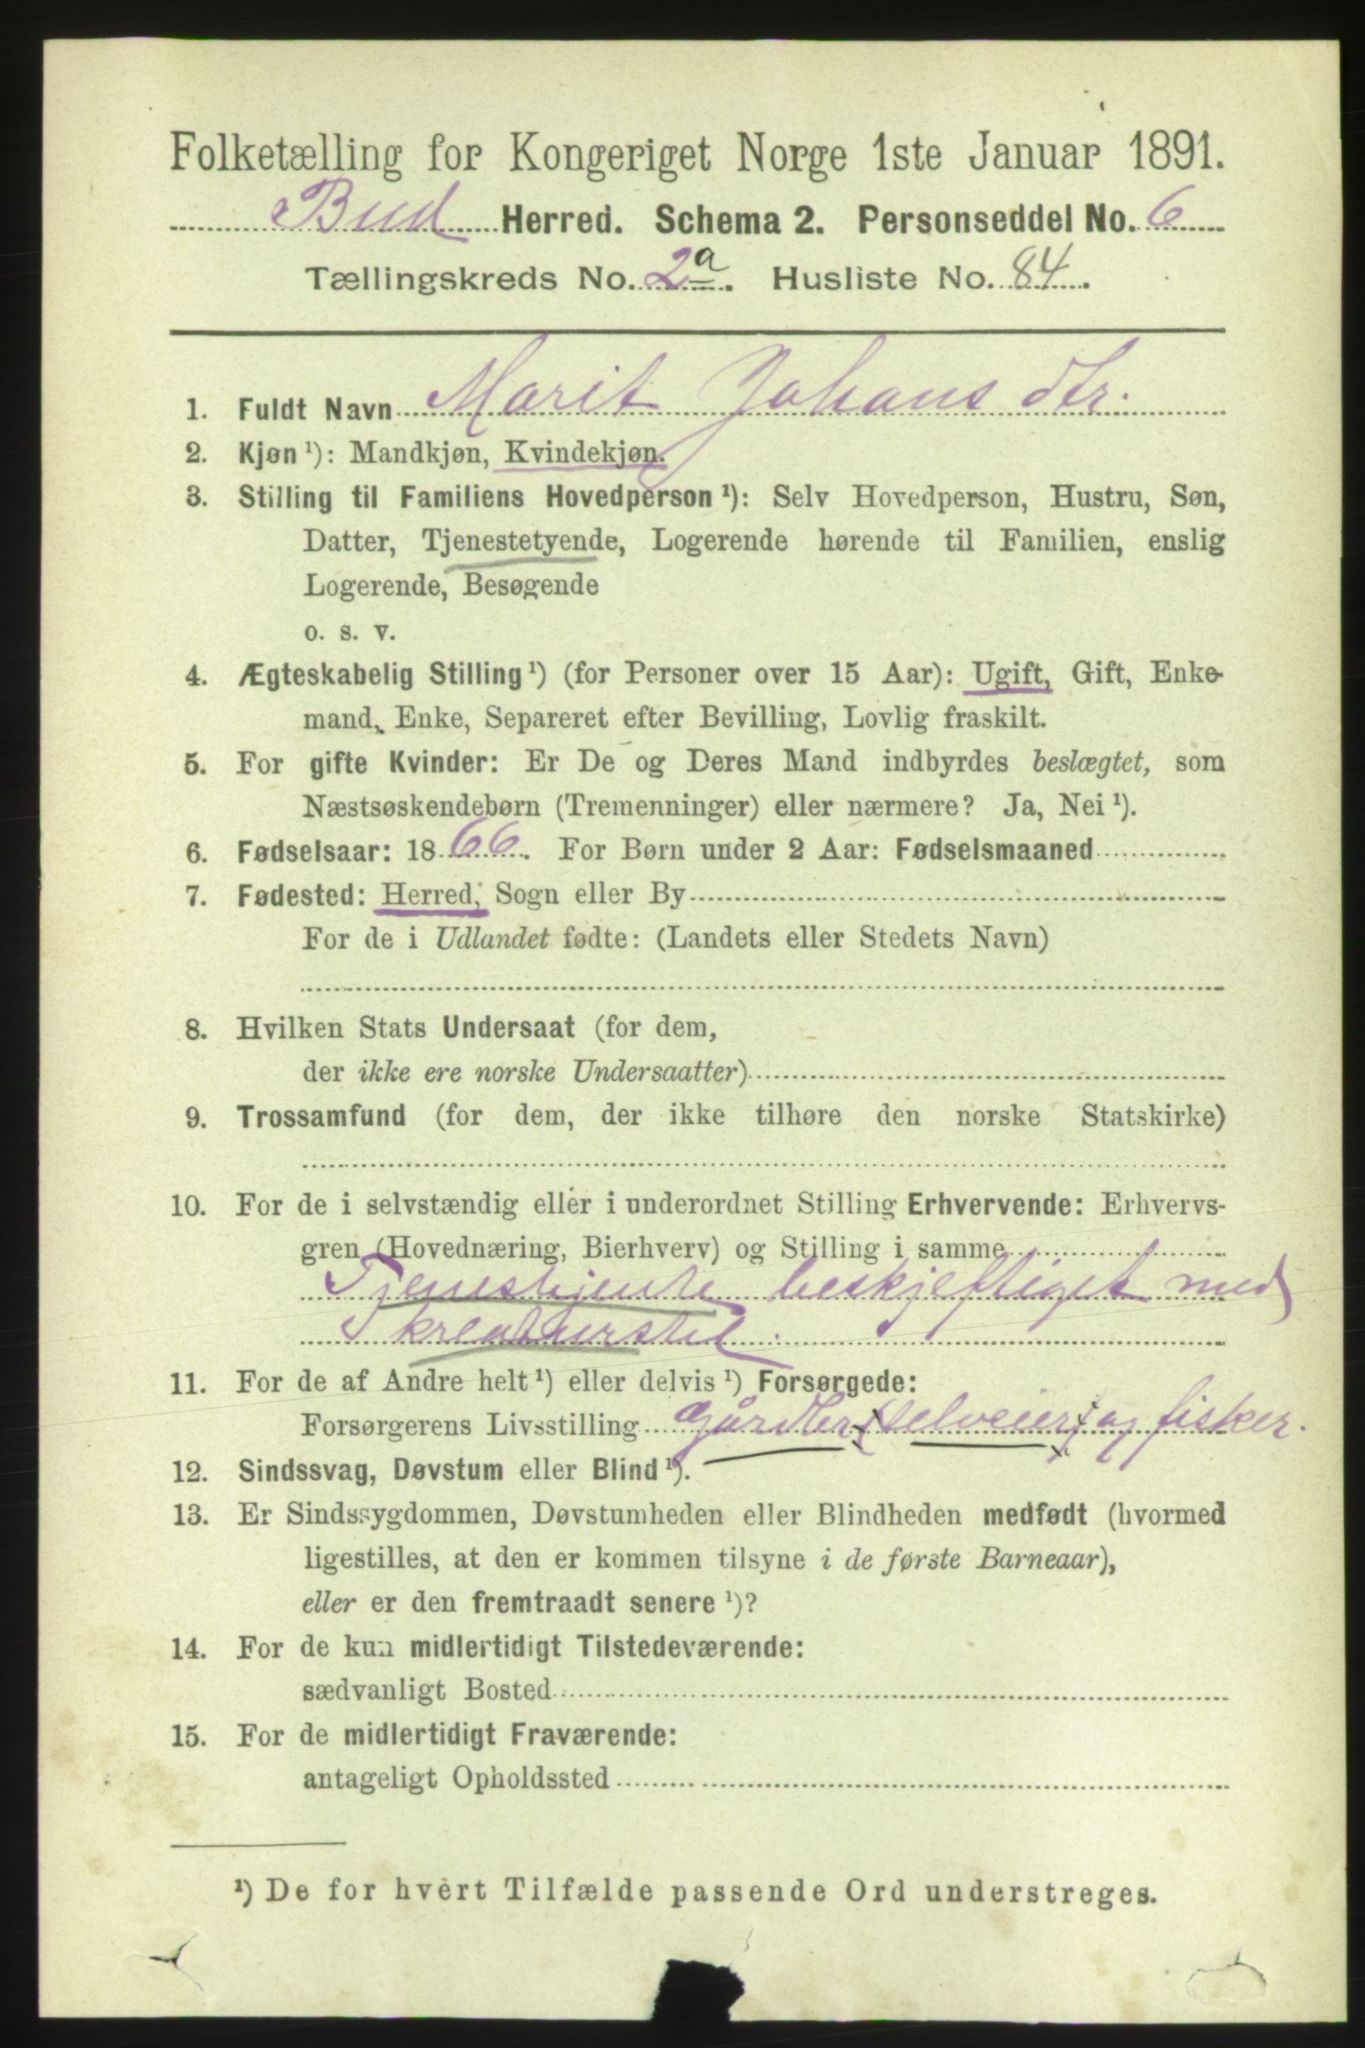 Folketælling for Kongeriget Norge 1ste Januar 1891.
Bud Herred. Schema 2. Personseddel No. 6
Tællingskreds No. 2a. Husliste No. 84.
1. Fuldt Navn Marit Johansdtr.
2. Kjøn ¹): Mandkjøn, Kvindekjøn.
3. Stilling til Familiens Hovedperson ¹): Selv Hovedperson, Hustru, Søn,
Datter, Tjenestetyende, Logerende hørende til Familien, enslig
Logerende, Besøgende
o. s. v.
4. Ægteskabelig Stilling ¹) (for Personer over 15 Aar): Ugift, Gift, Enke-
mand, Enke, Separeret efter Bevilling, Lovlig fraskilt.
5. For gifte Kvinder: Er De og Deres Mand indbyrdes beslægtet, som
Næstsøskendebørn (Tremenninger) eller nærmere? Ja, Nei ¹).
6. Fødselsaar: 1866. For Børn under 2 Aar: Fødselsmaaned
7. Fødested: Herred, Sogn eller By
For de i Udlandet fødte: (Landets eller Stedets Navn)
8. Hvilken Stats Undersaat (for dem,
der ikke ere norske Undersaatter)
9. Trossamfund (for dem, der ikke tilhøre den norske Statskirke)
10. For de i selvstændig eller i underordnet Stilling Erhvervende: Erhvervs-
gren (Hovednæring, Bierhverv) og Stilling i samme
Tjenestjente beskjeftiget med
kreaturstel.
11. For de af Andre helt ¹) eller delvis ¹) Forsørgede:
Forsørgerens Livsstilling gårdbr (selveier) og fisker.
12. Sindssvag, Døvstum eller Blind ¹).
13. Er Sindssygdommen, Døvstumheden eller Blindheden medfødt (hvormed
ligestilles, at den er kommen tilsyne i de første Barneaar),
eller er den fremtraadt senere ¹)?
14. For de kun midlertidigt Tilstedeværende:
sædvanligt Bosted
15. For de midlertidigt Fraværende:
antageligt Opholdssted
¹) De for hvert Tilfælde passende Ord understreges.